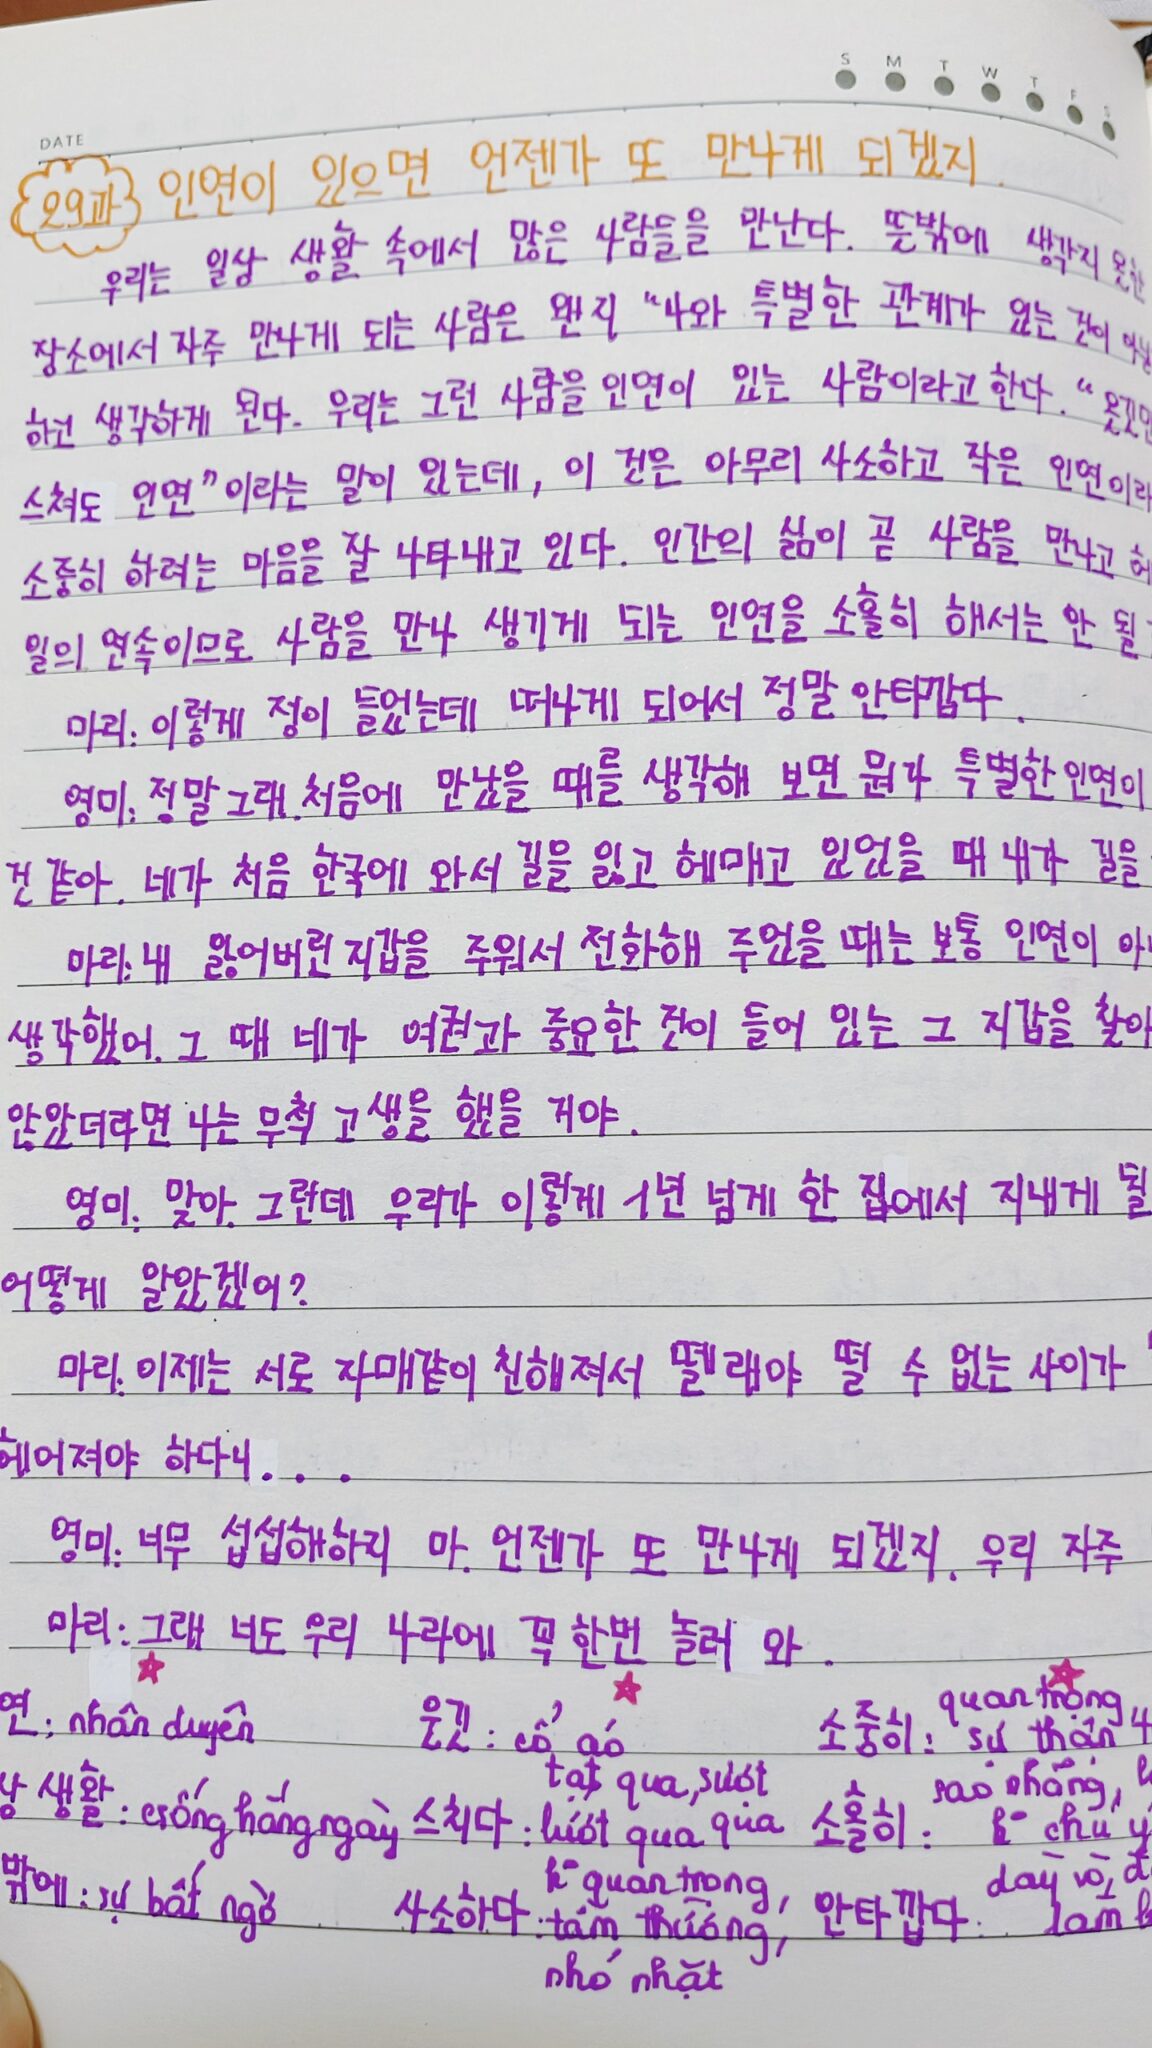 S M T W T F S
DATE
29과 인연이 있으면 언젠가 또 만나게 되겠지.
우리는 일상 생활 속에서 많은 사람들을 만난다. 뜻밖에 생각지 못한
장소에서 자주 만나게 되는 사람은 왠지 "나와 특별한 관계가 있는 것이
하고 생각하게 된다. 우리는 그런 사람을 인연이 있는 사람이라고 한다. "옷깃만
스쳐도 인연"이라는 말이 있는데, 이 것은 아무리 사소하고 작은 인연이라
소중히 하려는 마음을 잘 나타내고 있다. 인간의 삶이 곧 사람을 만나고 헤
일의 연속이므로 사람을 만나 생기게 되는 인연을 소홀히 해서는 안 될
마리: 이렇게 정이 들었는데 떠나게 되어서 정말 안타깝다.
영미: 정말 그래. 처음에 만났을 때를 생각해 보면 뭔가 특별한 인연이
건 같아. 네가 처음 한국에 와서 길을 잃고 헤매고 있었을 때 내가 길을
마리: 내 잃어버린 지갑을 주워서 전화해 주었을 때는 보통 인연이 아
생각했어. 그 때 네가 여권과 중요한 것이 들어 있는 그 지갑을 찾아
않았더라면 나는 무척 고생을 했을 거야.
영미: 맞아. 그런데 우리가 이렇게 1년 넘게 한 집에서 지내게 될
어떻게 알았겠어?
마리: 이제는 서로 자매같이 친해져서 뗄래야 뗄 수 없는 사이가
헤어져야 하다니. . . .
영미: 너무 섭섭해하지 마. 언젠가 또 만나게 되겠지. 우리 자주
마리: 그래 너도 우리 나라에 꼭 한번 놀러 와.
연: nhân duyên 옷깃: cổ áo 소중히: quan trọng sự thân
생활: csống hằng ngày 스치다: tạt qua, sượt lướt qua qua 소홀히: sao nhãng, k chú ý
밖에: sự bất ngờ 사소하다: k quan trọng, tầm thường, nhỏ nhặt 안타깝다: day vò,